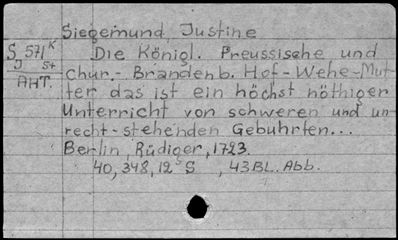 Siegemund, Justine
S 571 K
J St
AHT.
Die Königl. Preussische und
Chur.- Brandenb. Hof-Wehe-Mut-
ter das ist ein höchst nöthiger
Unterricht von schweren und un-
recht-stehenden Gebuhrten...
Berlin, Rüdiger, 1723.
40, 348, 12 S , 43 BL. Abb.